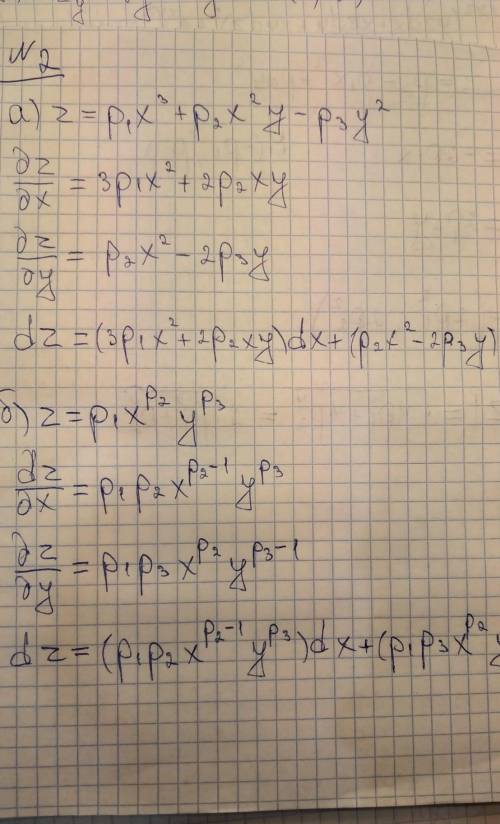 №2
а) z = p₁x³ + p₂x²y − p₃y²
∂z/∂x = 3p₁x² + 2p₂xy
∂z/∂y = p₂x² − 2p₃y
dz = (3p₁x² + 2p₂xy)dx + (p₂x² − 2p₃y)
б) z = p₁x^p₂ y^p₃
∂z/∂x = p₁p₂x^(p₂−1) y^p₃
∂z/∂y = p₁p₃x^p₂ y^(p₃−1)
dz = (p₁p₂x^(p₂−1) y^p₃)dx + (p₁p₃x^p₂ y